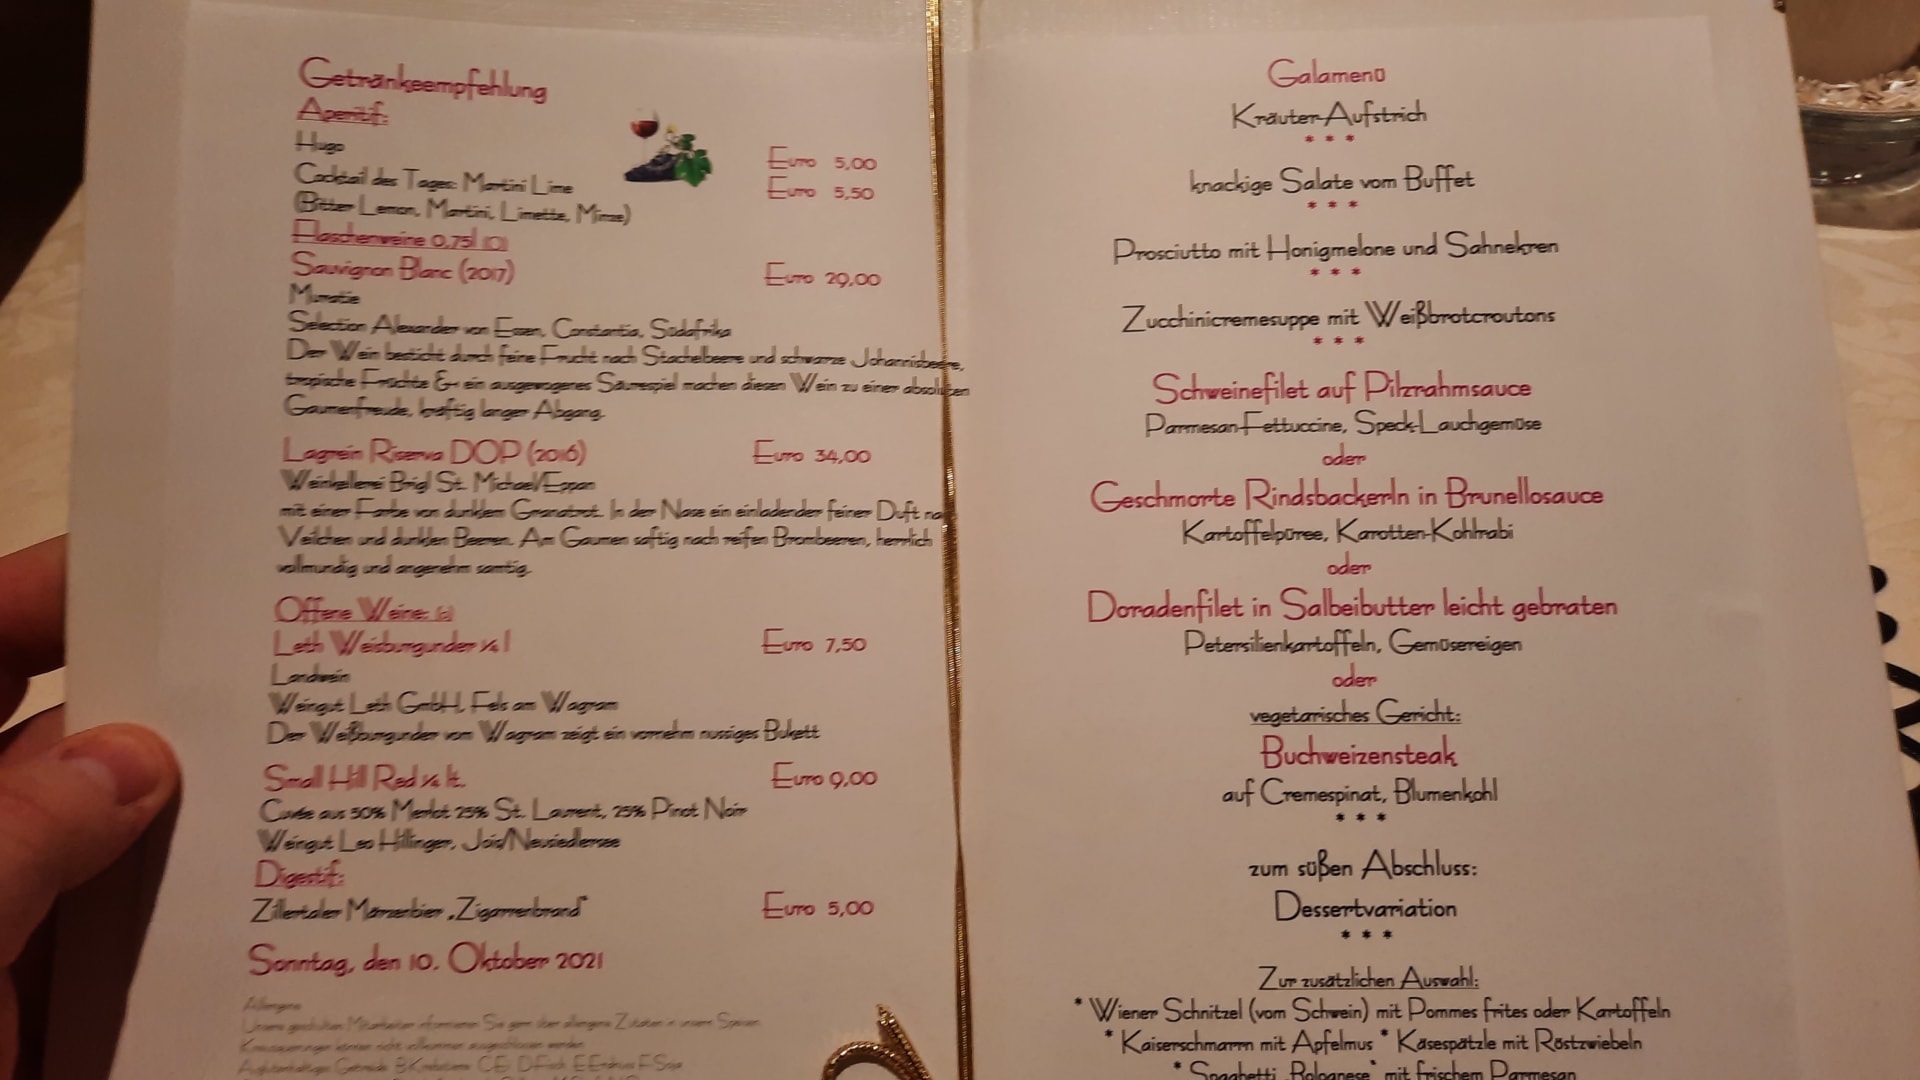 Getränkeempfehlung
Aperitif:
Hugo Euro 5,00
Cocktail des Tages: Martini Lime Euro 5,50
(Bitter Lemon, Martini, Limette, Minze)
Flaschenweine 0,75l (O)
Sauvignon Blanc (2017) Euro 29,00
Muratie
Selection Alexander von Essen, Constantia, Südafrika
Der Wein besticht durch feine Frucht nach Stachelbeere und schwarze Johannisbeere,
tropische Früchte & ein ausgewogenes Säurespiel machen diesen Wein zu einer absoluten
Gaumenfreude, kräftig langer Abgang.
Lagrein Riserva DOP (2016) Euro 34,00
Weinkellerei Brigl St. Michael/Eppan
mit einer Farbe von dunklem Granatrot. In der Nase ein einladender feiner Duft na
Veilchen und dunklen Beeren. Am Gaumen saftig nach reifen Brombeeren, herrlich
vollmundig und angenehm samtig.
Offene Weine:
Leth Weisburgunder ¼ l Euro 7,50
Landwein
Weingut Leth GmbH, Fels am Wagram
Der Weißburgunder vom Wagram zeigt ein vornehm nussiges Bukett
Small Hill Red ¼ lt. Euro 9,00
Cuvée aus 50% Merlot 25% St. Laurent, 25% Pinot Noir
Weingut Leo Hillinger, Jois/Neusiedlersee
Digestif:
Zillertaler Märzenbier „Zigarrenbrand“ Euro 5,00
Sonntag, den 10. Oktober 2021
Allergene
Unsere geschulten Mitarbeiter informieren Sie gern über allergene Zutaten in unseren Speisen.
Kreuzreaktionen können nicht vollkommen ausgeschlossen werden.
Galamenü
Kräuter-Aufstrich
* * *
knackige Salate vom Buffet
* * *
Prosciutto mit Honigmelone und Sahnekren
* * *
Zucchinicremesuppe mit Weißbrotcroutons
* * *
Schweinefilet auf Pilzrahmsauce
Parmesan-Fettuccine, Speck-Lauchgemüse
oder
Geschmorte Rindsbackerln in Brunellosauce
Kartoffelpüree, Karotten-Kohlrabi
oder
Doradenfilet in Salbeibutter leicht gebraten
Petersilienkartoffeln, Gemüsereigen
oder
vegetarisches Gericht:
Buchweizensteak
auf Cremespinat, Blumenkohl
* * *
zum süßen Abschluss:
Dessertvariation
* * *
Zur zusätzlichen Auswahl:
* Wiener Schnitzel (vom Schwein) mit Pommes frites oder Kartoffeln
* Kaiserschmarrn mit Apfelmus * Käsespätzle mit Röstzwiebeln
* Spaghetti „Bolognese“ mit frischem Parmesan